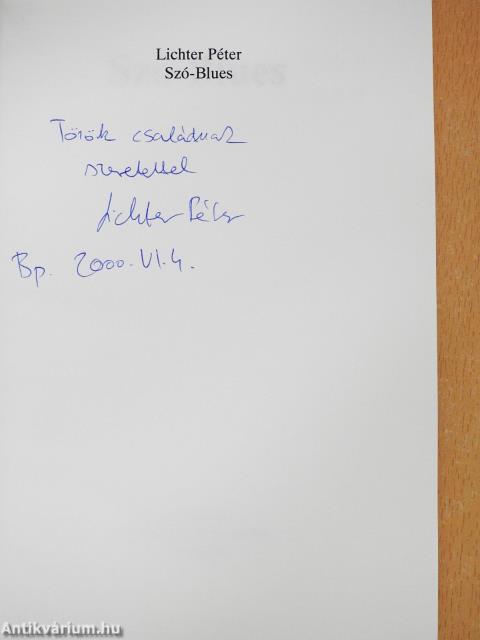 Lichter Péter
Szó-Blues
Török családnak
szeretettel
Lichter Péter
Bp. 2000. VI. 4.
Antikvárium.hu